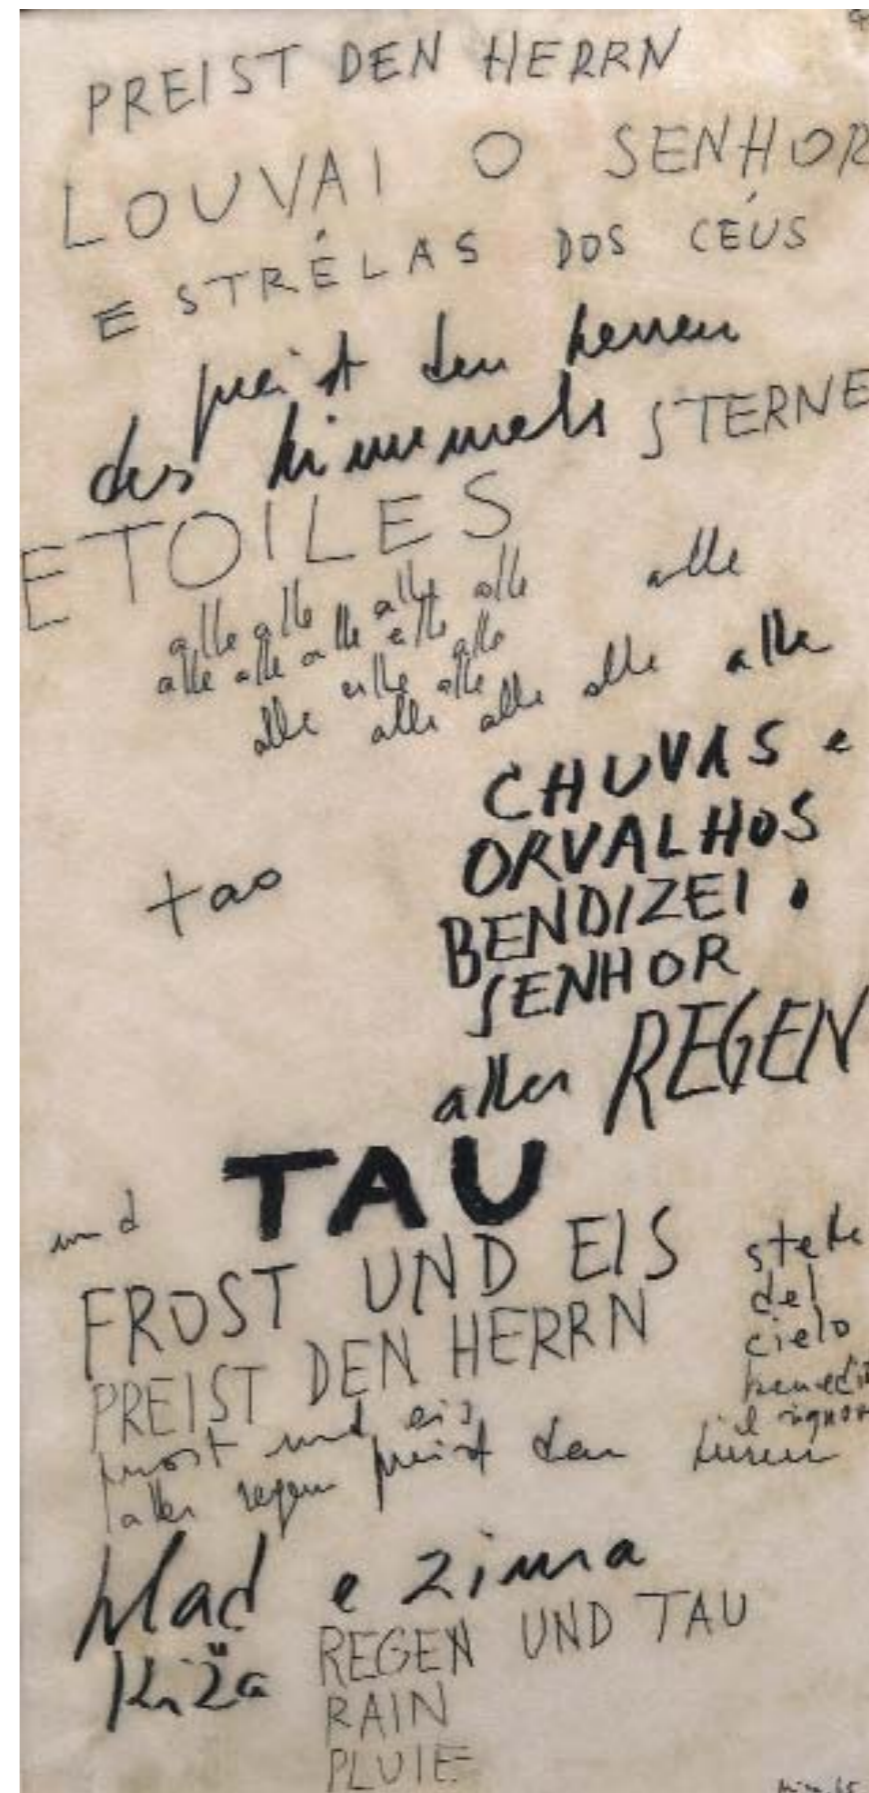 PREIST DEN HERRN
LOUVAI O SENHOR
ESTRÉLAS DOS CÉUS
preist den herren
des himmels STERNE
ETOILES
alle alle alle alle alle
alle alle alle alle alle
alle alle alle alle alle
alle alle alle
CHUVAS e
ORVALHOS
tao
BENDIZEI o
SENHOR
aller REGEN
und TAU
FROST UND EIS
PREIST DEN HERRN
stelle
del
cielo
benedi
il signor
frost und eis
aller regen preist den herren
hlad e zima
REGEN UND TAU
RAIN
PLUIE